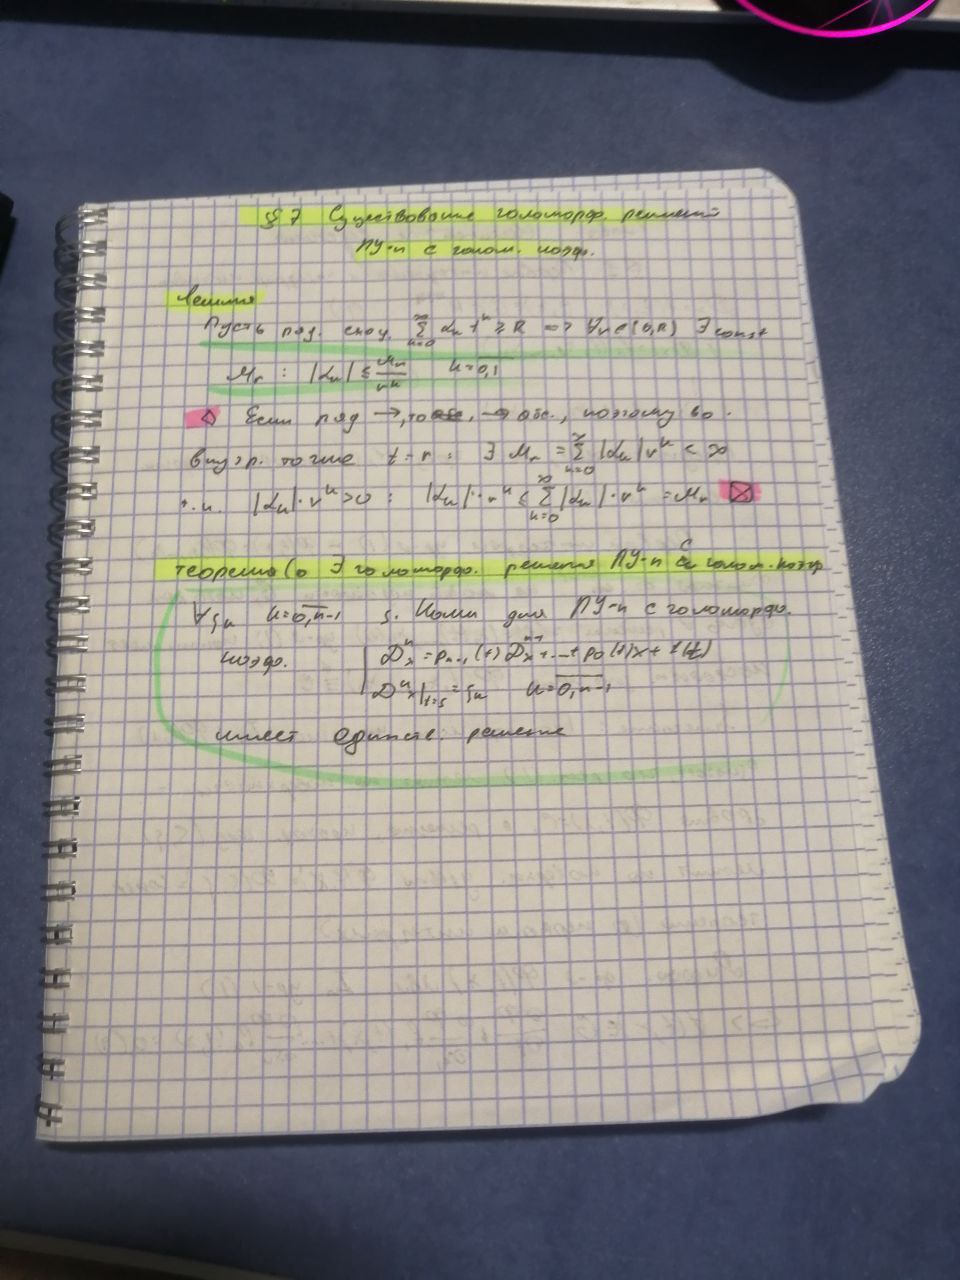 § 7 Существование голоморф. решений
ЛУ-n с голом. коэф.
Лемма
Пусть рад. сход. ∑_{k=0}^{∞} α_k t^k ≥ R => ∀r∈(0,R) ∃ const
M_r : |α_k| ≤ M_r/r^k k=0,1
Если ряд →, то → абс., поэтому во
внутр. точке t=r : ∃ M_r = ∑_{k=0}^{∞} |α_k| r^k < ∞
т.к. |α_k|·r^k>0 : |α_k|·r^k ≤ ∑_{k=0}^{∞} |α_k|·r^k = M_r
теорема (о ∃ голоморф. решения ЛУ-n с голом. коэф
∀ξ_k k=0,n-1 з. Коши для ЛУ-n с голоморф.
коэф. D^n x = p_{n-1}(t) D^{n-1} x + ... + p_0(t)x + f(t)
D^k x|_{t=s} = ξ_k k=0,n-1
имеет единств. решение